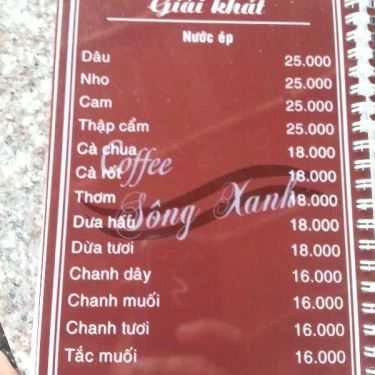 Giải khát
Nước ép
Dâu 25.000
Nho 25.000
Cam 25.000
Thập cẩm 25.000
Cà chua 18.000
Cà rốt 18.000
Thơm 18.000
Dưa hấu 18.000
Dừa tươi 18.000
Chanh dây 16.000
Chanh muối 16.000
Chanh tươi 16.000
Tắc muối 16.000
Coffee
Sông Xanh